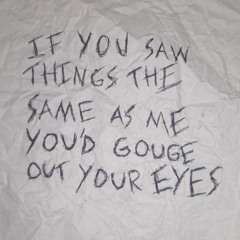 IF YOU SAW
THINGS THE
SAME AS ME
YOU'D GOUGE
OUT YOUR EYES